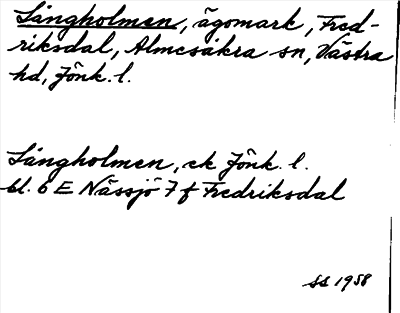 Långholmen, ägomark, Fred-
riksdal, Almesåkra sn, Västra
hd, Jönk. l.
Långholmen, ek Jönk. l.
bl. 6 E Nässjö 7 f Fredriksdal
SS 1958